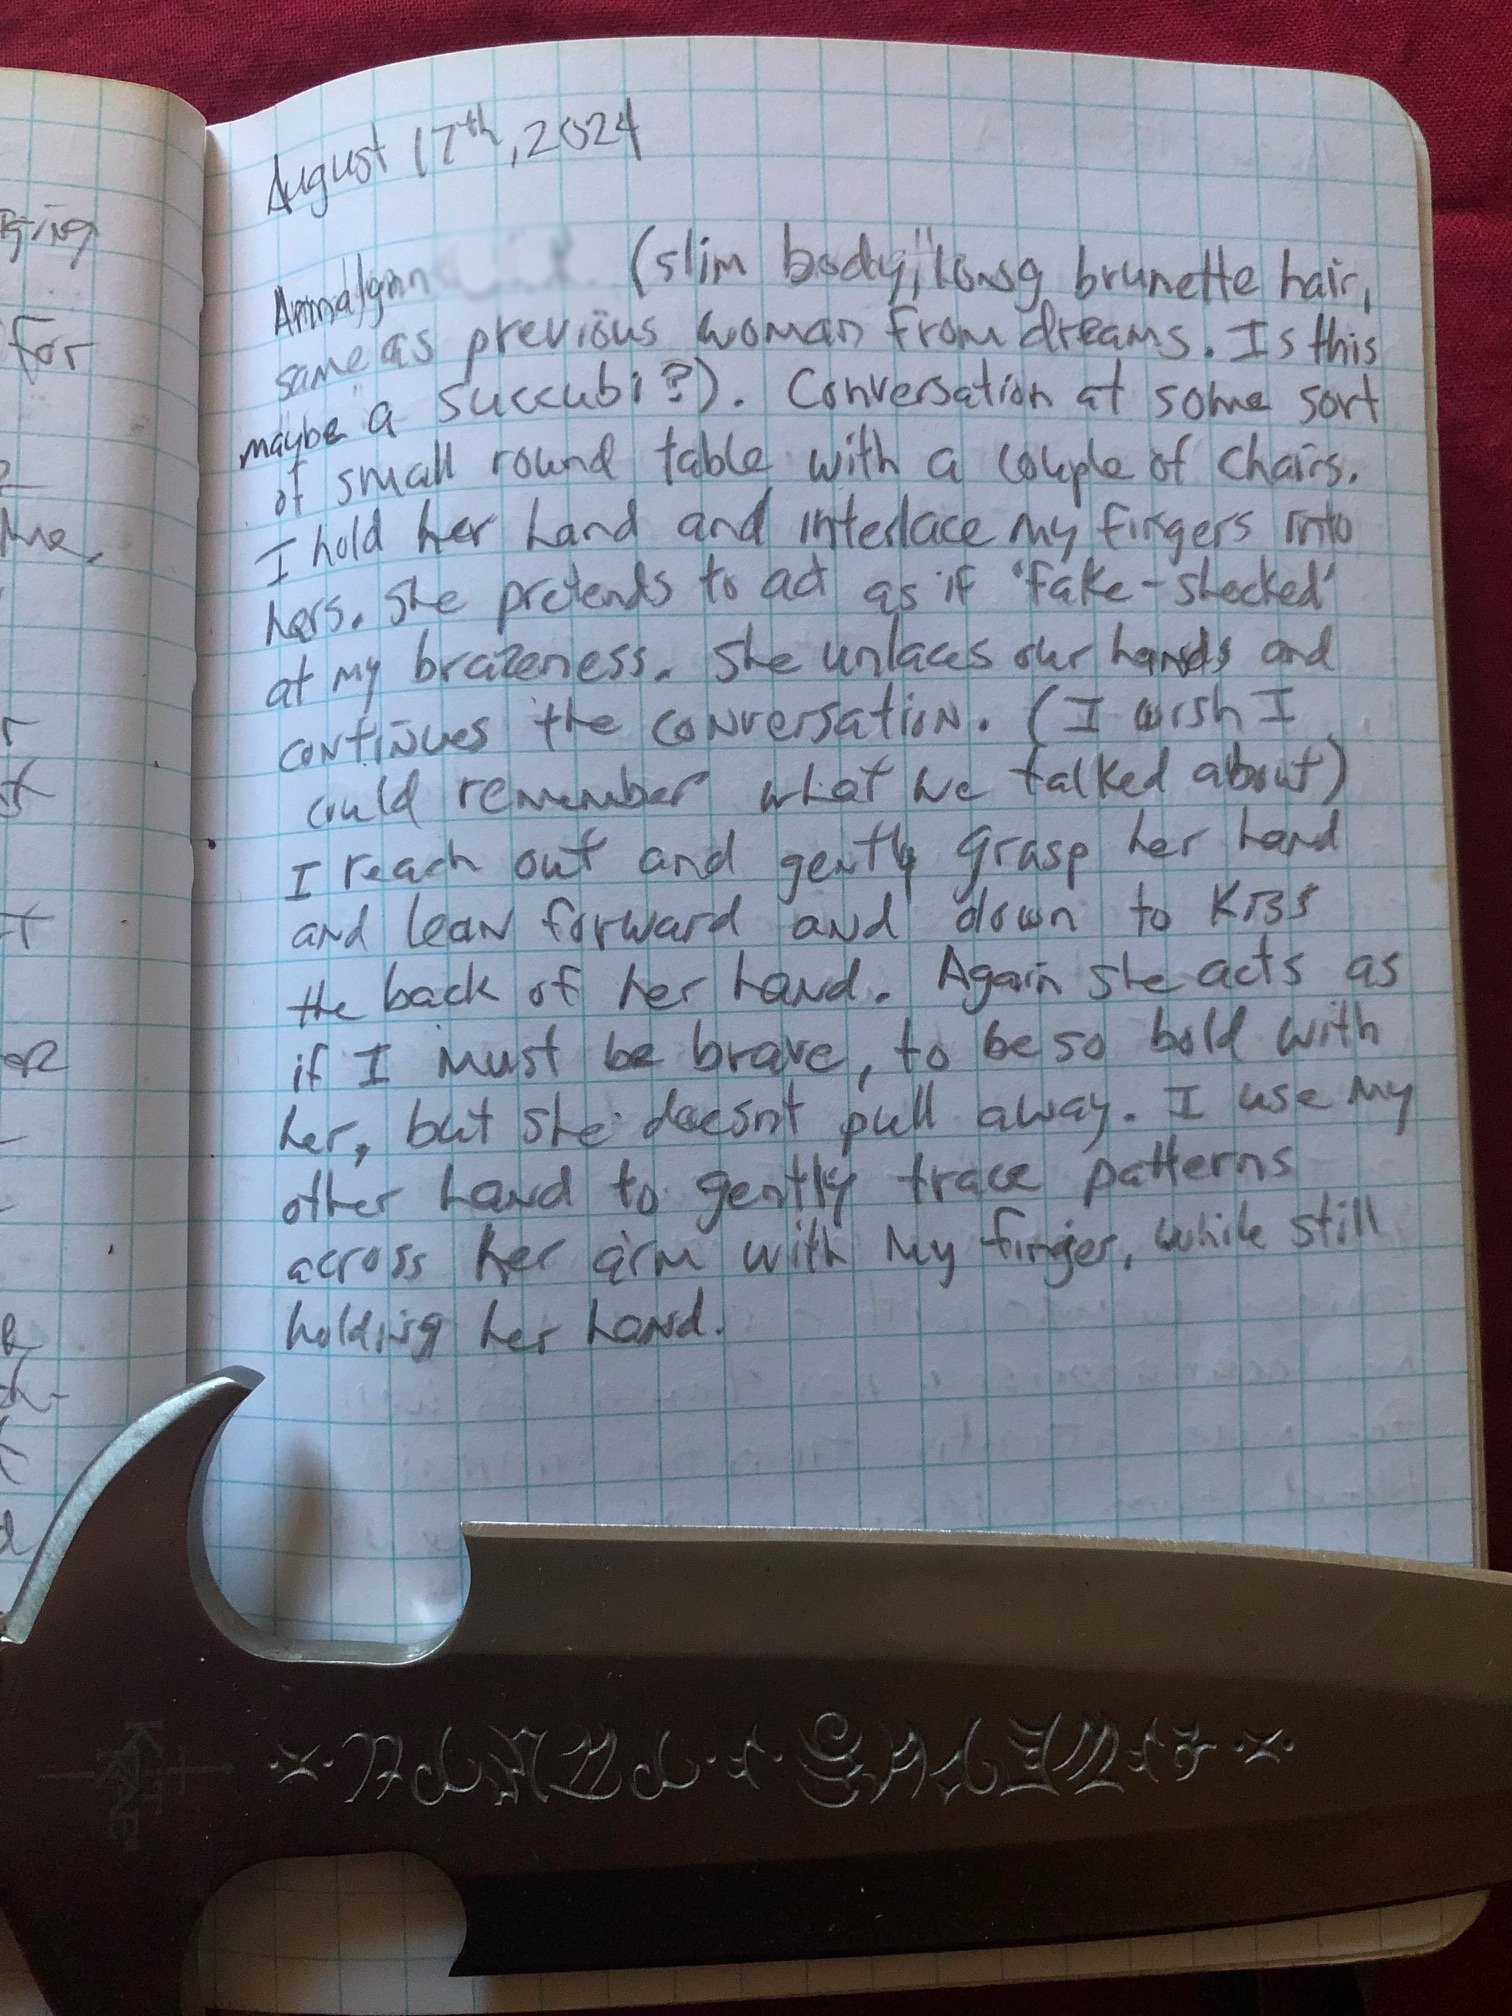 ging
for
me.
August 17th, 2024
Annalynn (slim body, long brunette hair,
same as previous woman from dreams. Is this
maybe a succubi?). Conversation at some sort
of small round table with a couple of chairs.
I hold her hand and interlace my fingers into
hers. She pretends to act as if 'fake-shocked'
at my brazeness. She unlaces our hands and
continues the conversation. (I wish I
could remember what we talked about)
I reach out and gently grasp her hand
and lean forward and down to kiss
the back of her hand. Again she acts as
if I must be brave, to be so bold with
her, but she doesnt pull away. I use my
other hand to gently trace patterns
across her arm with my finger, while still
holding her hand.